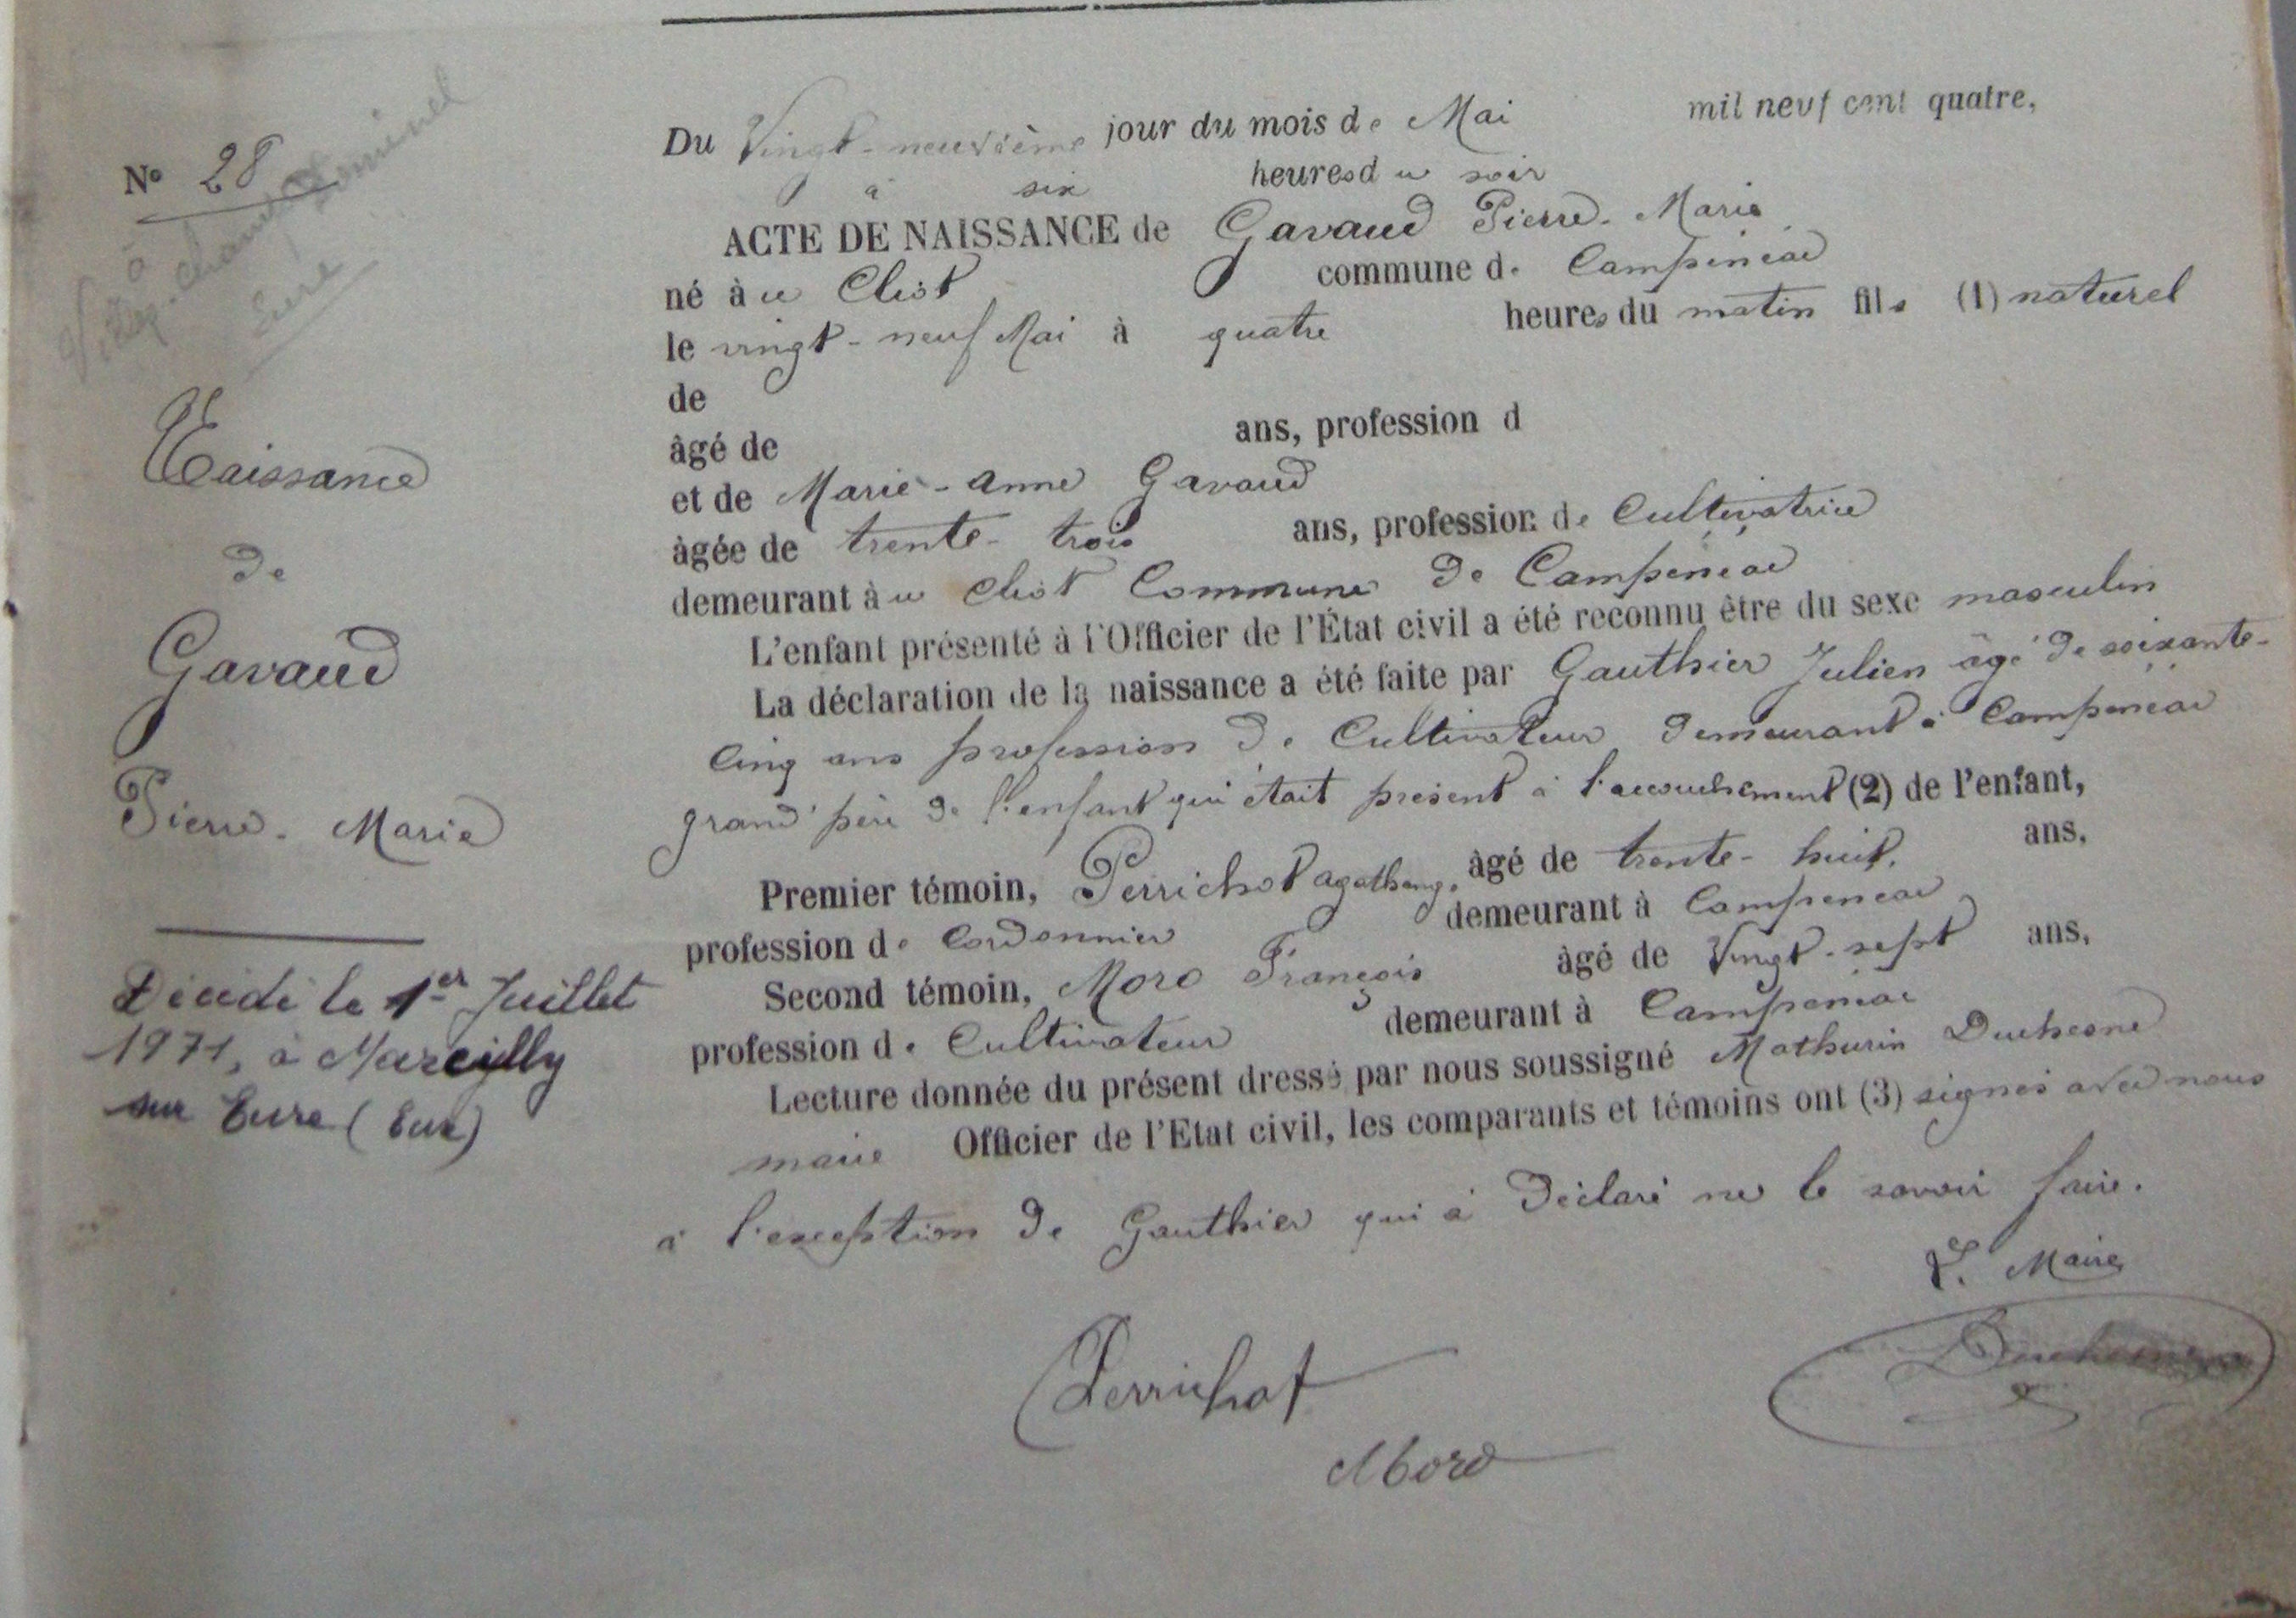 N° 28
à
Eure
Naissance
de
Gavaud
Pierre-Marie
Décédé le 1er Juillet
1971, à Marcilly
sur Eure (Eure)
Du Vingt-neuvième jour du mois de Mai mil neuf cent quatre,
à six heures du soir
ACTE DE NAISSANCE de Gavaud Pierre-Marie
né à u Cliot commune de Campénéac
le vingt-neuf Mai à quatre heures du matin fils (1) naturel
de
âgé de ans, profession d
et de Marie-Anne Gavaud
âgée de trente-trois ans, profession de Cultivatrice
demeurant à u Cliot Commune de Campénéac
L'enfant présenté à l'Officier de l'État civil a été reconnu être du sexe masculin
La déclaration de la naissance a été faite par Gauthier Julien âgé de soixante-
cinq ans profession de Cultivateur demeurant à Campénéac
grand'père de l'enfant qui était présent à l'accouchement (2) de l'enfant,
Premier témoin, Perrichot Agathange âgé de trente-huit ans,
profession de Cordonnier demeurant à Campénéac
Second témoin, Moro François âgé de Vingt-sept ans,
profession de Cultivateur demeurant à Campénéac
Lecture donnée du présent dressé par nous soussigné Mathurin Duchesne
maire Officier de l'Etat civil, les comparants et témoins ont (3) signés avec nous
à l'exception de Gauthier qui à déclaré ne le savoir faire.
L. Maire
Perrichot
Moro
Duchesne